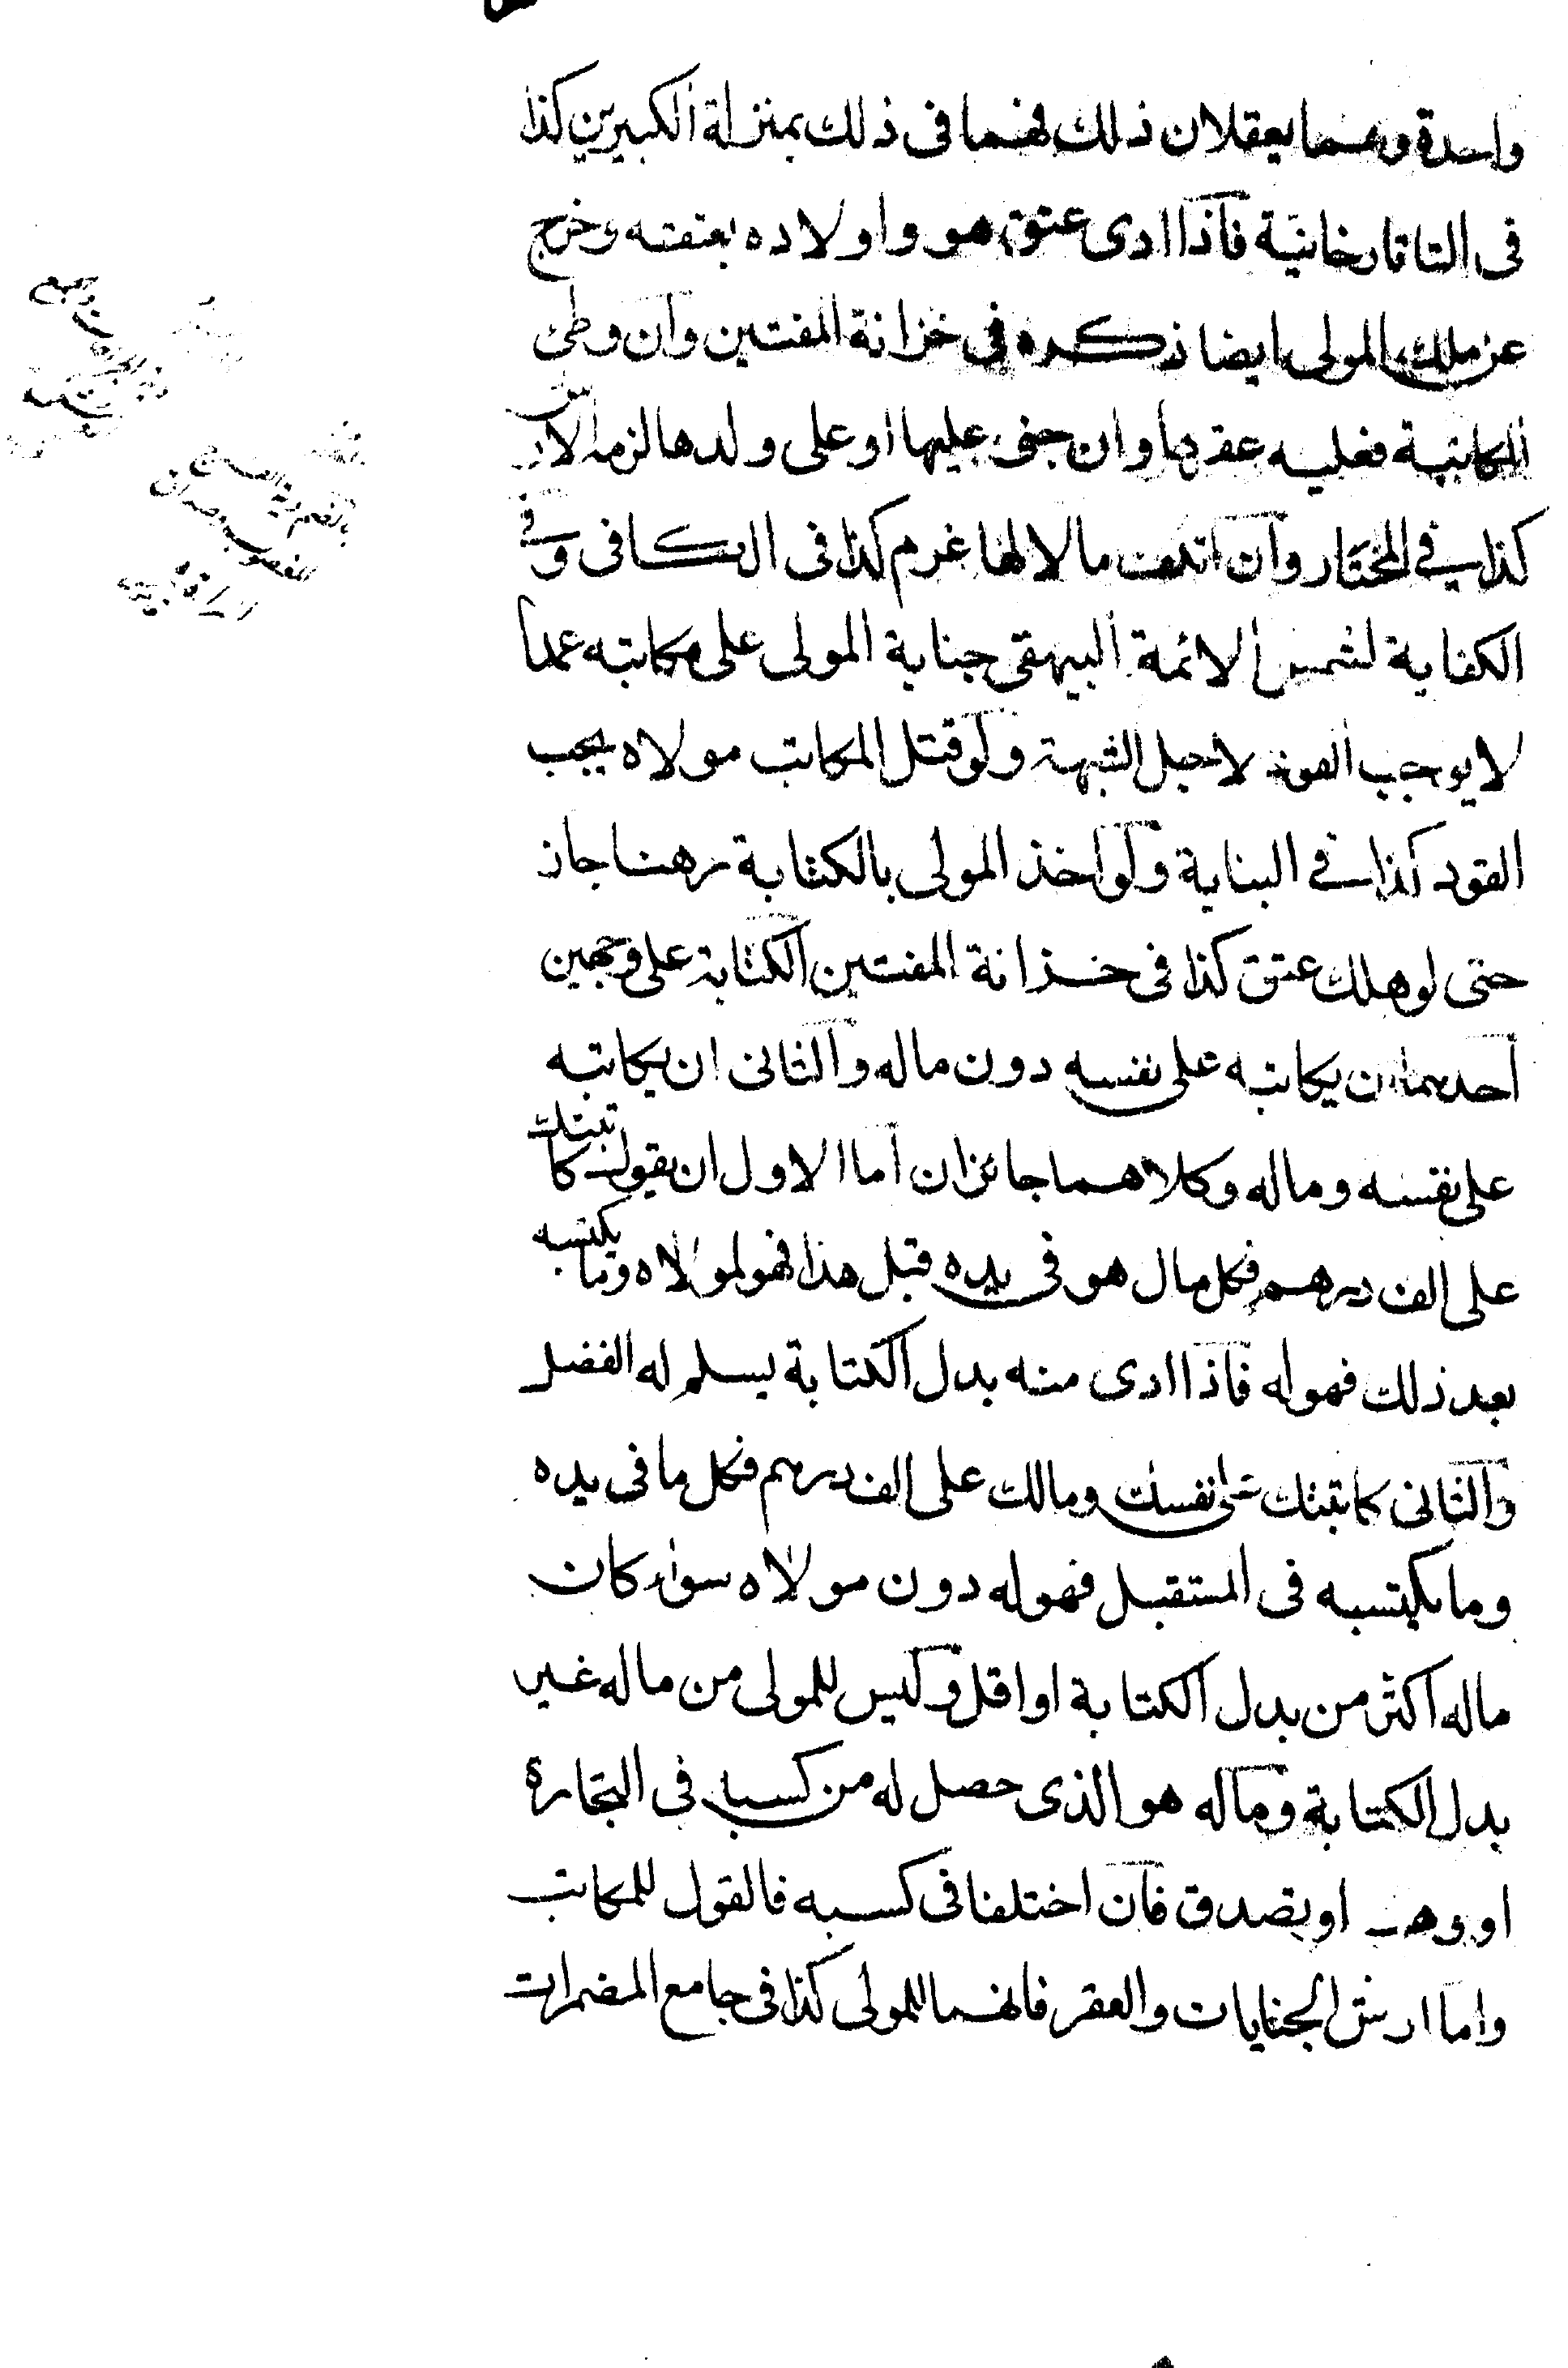 واحدة وهما يعقلان ذلك فهما فى ذلك بمنزلة الكبيرين كذا
فى التاتارخانية فاذا ادى عتق هو واولاده بعتقه وخرج
عن ملك المولى ايضا ذكره فى خزانة المفتين وان وطئ
المكاتبة فعليه عقرها وان جنى عليها او على ولدها لزمه الارش
كذا فى المختار وان اتلف مالا لها غرم كذا فى الكافى وفى
الكفاية لشمس الائمة البيهقى جناية المولى على مكاتبه عمدا
لا يوجب القود لاجل الشبهة ولو قتل المكاتب مولاه يجب
القود كذا فى البناية ولو اخذ المولى بالكتابة رهنا جاز
حتى لو هلك عتق كذا فى خزانة المفتين الكتابة على وجهين
احدهما ان يكاتبه على نفسه دون ماله والثانى ان يكاتبه
على نفسه وماله وكلاهما جائزان اما الاول ان يقول كاتبتك
على الف درهم فكل مال هو فى يده قبل هذا فهو لمولاه وما يكتسبه
بعد ذلك فهو له فاذا ادى منه بدل الكتابة يسلم له الفضل
والثانى كاتبتك على نفسك ومالك على الف درهم فكل ما فى يده
وما يكتسبه فى المستقبل فهو له دون مولاه سواء كان
ماله اكثر من بدل الكتابة او اقل وليس للمولى من ماله غير
بدل الكتابة وماله هو الذى حصل له من كسبه فى التجارة
او وهب او تصدق فان اختلفا فى كسبه فالقول للمكاتب
واما ارش الجنايات والعقر فانهما للمولى كذا فى جامع المضمرات